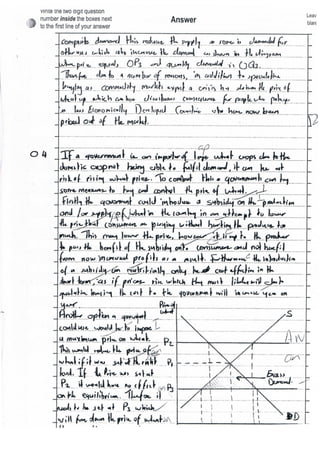 Write the two digit question
number inside the boxes next
to the first line of your answer
Answer
Leave
blank
composite demand this reduces the supply as some is demanded for
other uses which also increases the demand as shown in the diagram
where price equals OP2 and quantity demanded is OQ2.
Therefore due to a number of reasons, in addition to speculative
buying as commodity markets expect a crisis has driven the price of
wheat up which can have disastrous consequences for people who
in less Economically Developed Countries who have now been
priced out of the market.
04 If a government is an importer of wheat crops due to the
domestic crop not being able to fulfil demand, it can be at
risk of rising wheat prices. To combat this a government can try
some measures to try and control the price of wheat.
Firstly the government could introduce a subsidy on the production
and / or supply of wheat in the country in an attempt to lower
the price that consumers are paying without hurting the produce too
much. This may lower the price, however it is up to the producer
to pass the benefit of the subsidy onto consumers and not benefit
from now increased profits as a result. Furthermore the introduction
of a subsidy can only be cost effective in the
short term, as if prices rise which they most likely will due to
the cost to the government will increase year on
year.
Another option a government
could use would be to impose
a maximum price on wheat.
This would reduce the price of
wheat if it was set at the right
level. If the price was set at
P2 it would have no effect
on the equilibrium. Therefore it
needs to be set at P3 which
will force down the price of wheat
Price of
wheat
S
P2
P1
P3
Excess
Demand
D